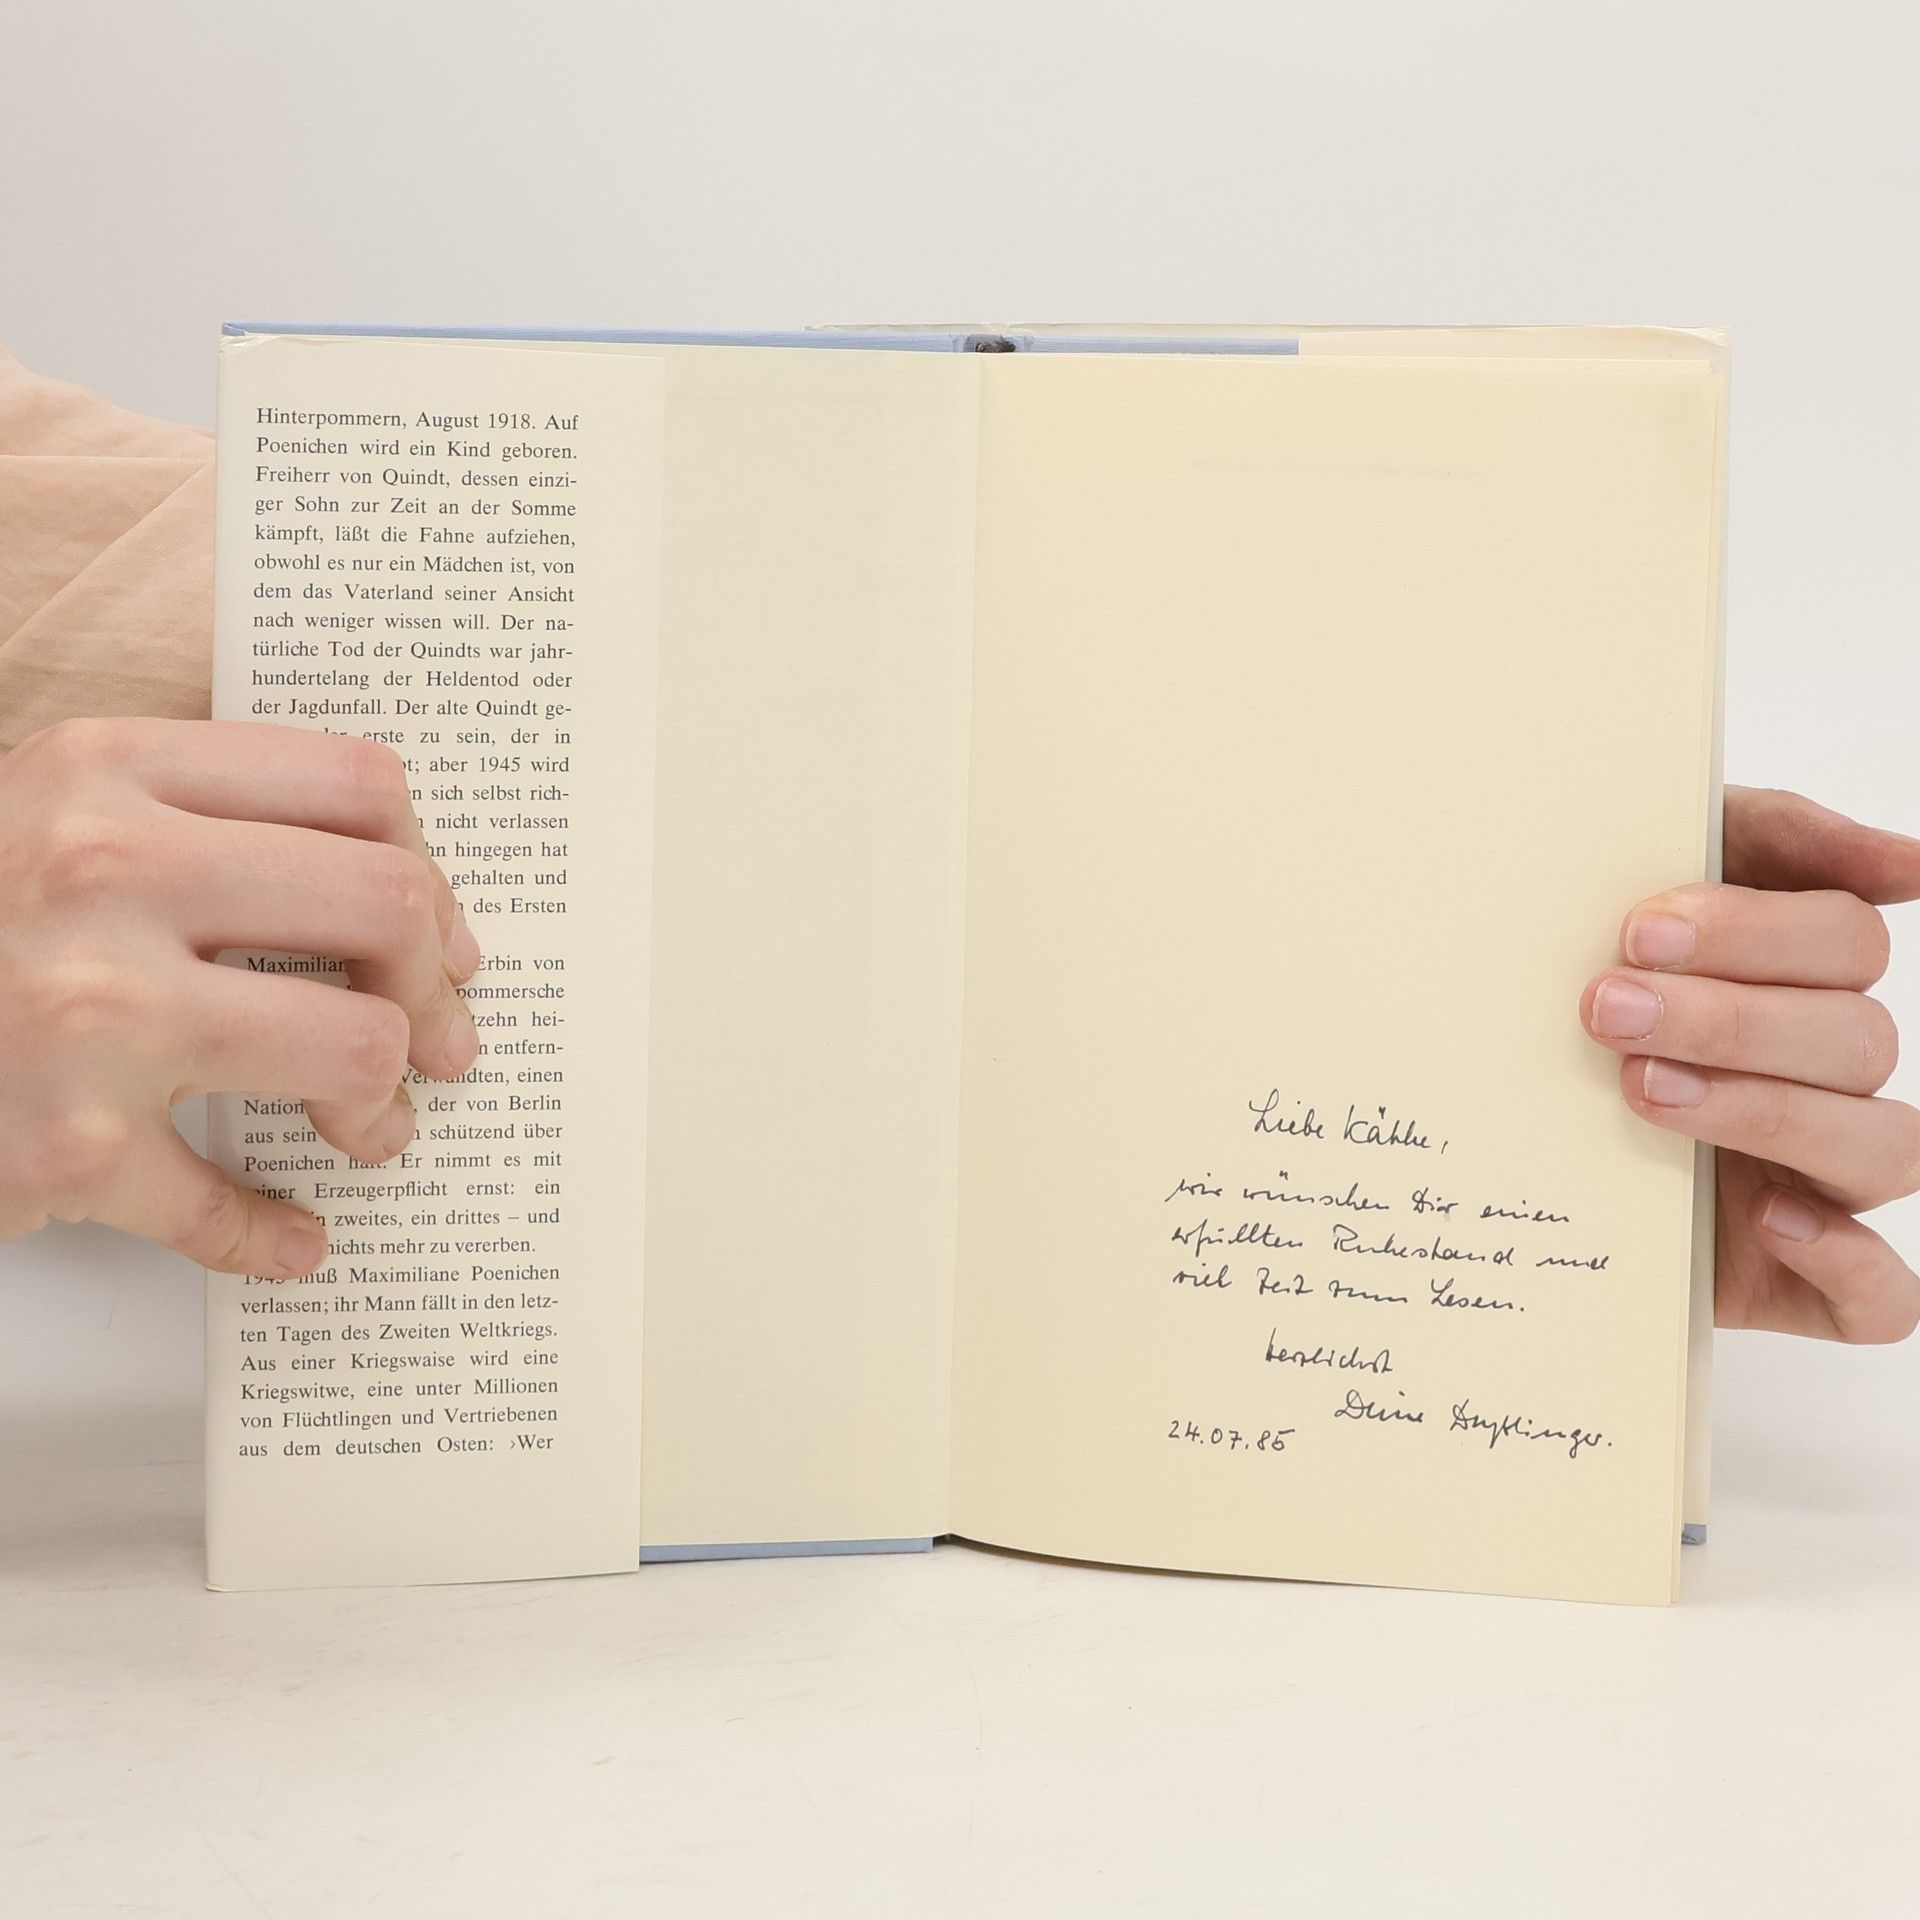 Hinterpommern, August 1918. Auf
Poenichen wird ein Kind geboren.
Freiherr von Quindt, dessen einzi-
ger Sohn zur Zeit an der Somme
kämpft, läßt die Fahne aufziehen,
obwohl es nur ein Mädchen ist, von
dem das Vaterland seiner Ansicht
nach weniger wissen will. Der na-
türliche Tod der Quindts war jahr-
hundertelang der Heldentod oder
der Jagdunfall. Der alte Quindt ge-
erste zu sein, der in
aber 1945 wird
sich selbst rich-
nicht verlassen
hingegen hat
gehalten und
des Ersten
Erbin von
pommersche
hei-
entfern-
Verwandten, einen
der von Berlin
aus sein schützend über
Poenichen hält. Er nimmt es mit
seiner Erzeugerpflicht ernst: ein
zweites, ein drittes – und
nichts mehr zu vererben.
1945 muß Maximiliane Poenichen
verlassen; ihr Mann fällt in den letz-
ten Tagen des Zweiten Weltkriegs.
Aus einer Kriegswaise wird eine
Kriegswitwe, eine unter Millionen
von Flüchtlingen und Vertriebenen
aus dem deutschen Osten: ›Wer
Liebe Käthe,
wir wünschen Dir einen
erfüllten Ruhestand und
viel Zeit zum Lesen.
herzlichst
Deine
24.07.85